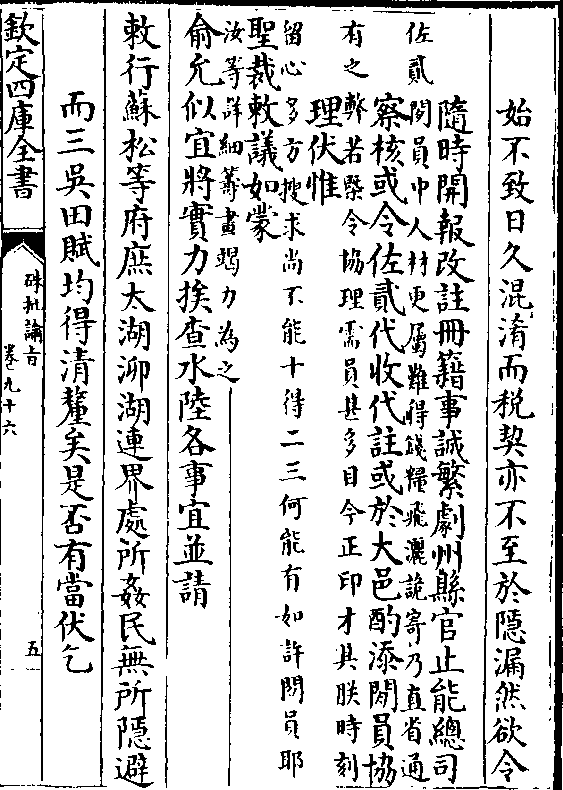 始不致日久混淆而税契亦不至於隱漏然欲令
隨時開報改註冊籍事誠繁劇州縣官止能總司
佐貳閑員中人材更屬難得錢糧飛灑詭寄乃直省通
察核或令佐貳代收代註或於大邑酌添閑員協
有之弊若槩令協理需員甚多目今正印才具朕時刻
理伏惟
留心多方搜求尚不能十得二三何能有如許閑員耶
聖裁敕議如蒙
汝等詳細籌畫竭力為之
俞允似宜將實力挨查水陸各事宜並請
敕行蘇松等府庶太湖泖湖連界處所姦民無所隱避
而三吳田賦均得清釐矣是否有當伏乞
欽定四庫全書
硃批諭旨
卷九十六
五